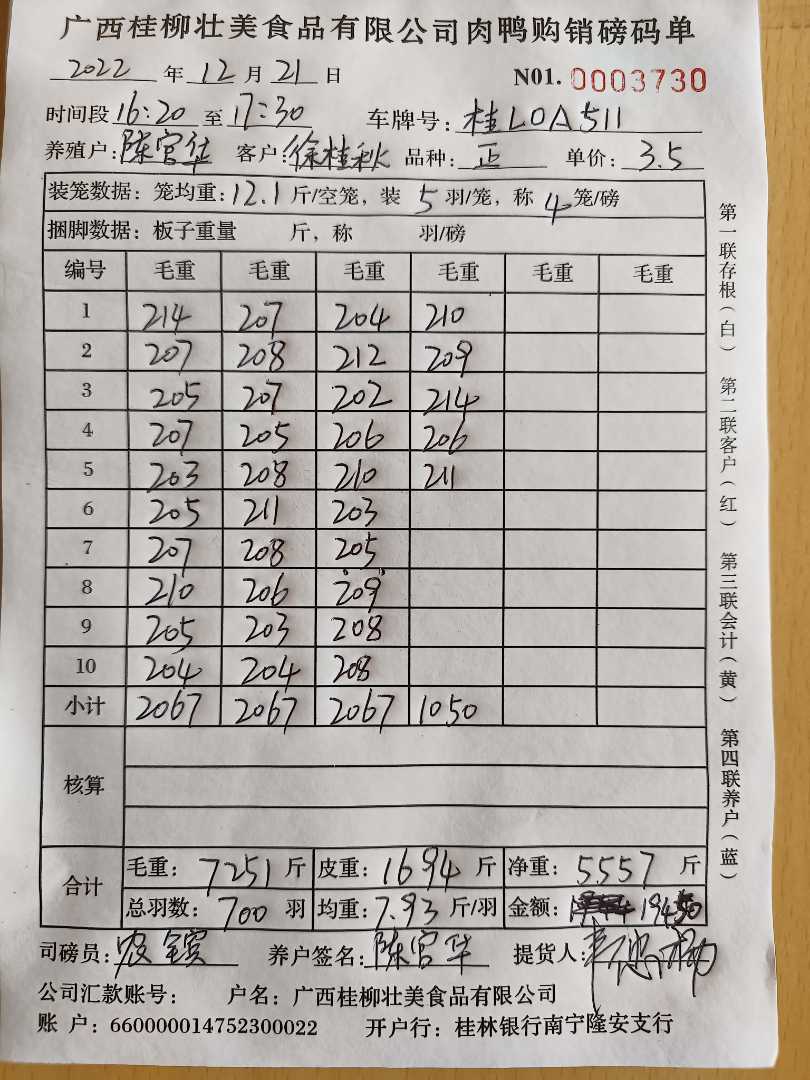 广西桂柳壮美食品有限公司肉鸭购销磅码单
2022 年 12 月 21 日 N01. 0003730
时间段 16:20 至 17:30 车牌号: 桂L0A511
养殖户: 陈宫华 客户: 徐桂秋 品种: 正 单价: 3.5
装笼数据: 笼均重: 12.1 斤/空笼, 装 5 羽/笼, 称 4 笼/磅
捆脚数据: 板子重量 斤, 称 羽/磅
编号 毛重 毛重 毛重 毛重 毛重 毛重
1 214 207 204 210
2 207 208 212 209
3 205 207 202 214
4 207 205 206 206
5 203 208 210 211
6 205 211 203
7 207 208 205
8 210 206 209
9 205 203 208
10 204 204 208
小计 2067 2067 2067 1050
核算
合计 毛重: 7251 斤 皮重: 1694 斤 净重: 5557 斤
总羽数: 700 羽 均重: 7.93 斤/羽 金额: 19450
司磅员: 农宝宾 养户签名: 陈宫华 提货人:
公司汇款账号: 户名: 广西桂柳壮美食品有限公司
账 户: 660000014752300022 开户行: 桂林银行南宁隆安支行
第一联存根(白) 第二联客户(红) 第三联会计(黄) 第四联养户(蓝)